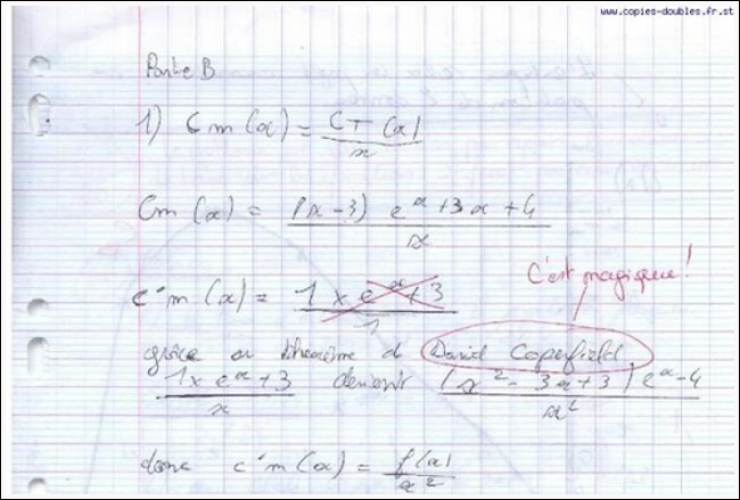 www.copies-doubles.fr.st
Partie B
1) Cm(x) = CT(x) / x
Cm(x) = (x-3) e^x + 3x + 4 / x
C'est magique!
c'm(x) = 1 x e^x + 3 / 1
grâce au théorème d David Coperfield
1 x e^x + 3 / x devient (x² - 3x + 3) e^x - 4 / x²
donc c'm(x) = f(x) / x²